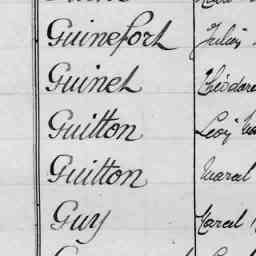 Guinefort Julien
Guinet Théodore
Guitton Léon
Guitton Marcel
Guy Marcel